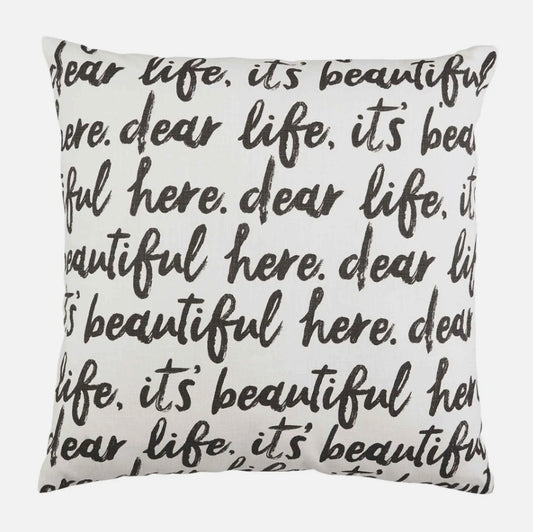 dear life, it's beautiful
here. dear life, it's bea
iful here. dear life, it's
eautiful here. dear lif
t's beautiful here. dear
life, it's beautiful her
dear life, it's beautiful
ere. dear life, it's beautiful